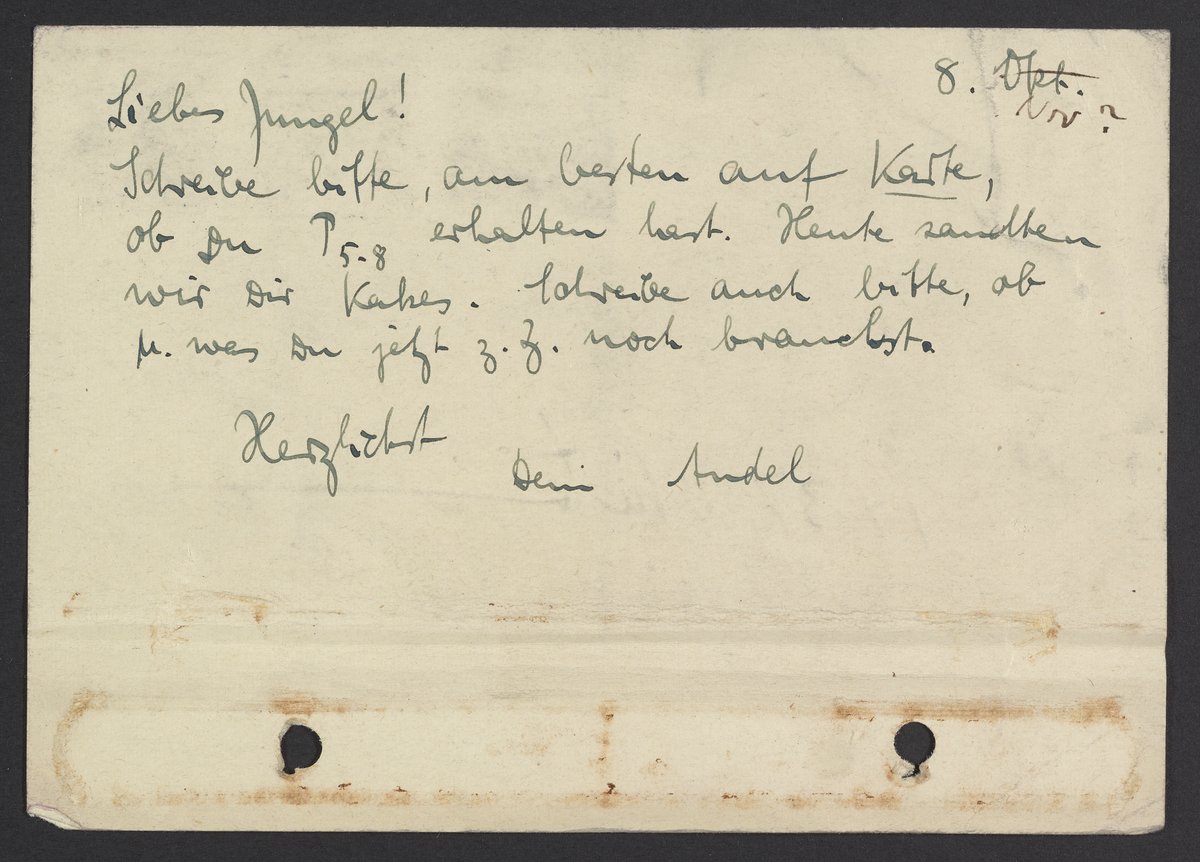 8. Okt.
Nov ?
Liebes Jungel!
Schreibe bitte, am besten auf Karte,
ob Du P 5-8 erhalten hast. Heute sandten
wir Dir Kakes. Schreibe auch bitte, ob
u. was Du jetzt z. Z. noch brauchst.
Herzlichst
Dein Andel